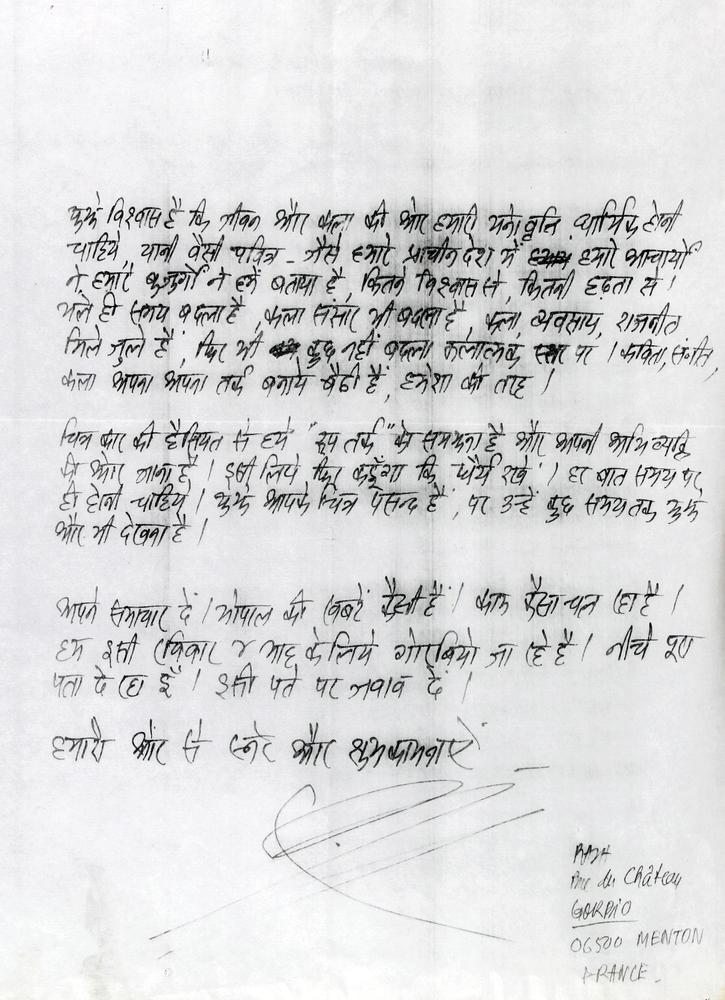 मुझे विश्वास है कि जीवन और कला की ओर हमारी मनोवृत्ति धार्मिक होनी
चाहिये, यानी वैसी पवित्र - जैसे हमारे प्राचीन देश में हमारे आचार्यों
ने, हमारे बुजुर्गों ने हमें बताया है, कितने विश्वास से, कितनी दृढ़ता से।
भले ही समय बदला है, कला संसार भी बदला है, कला, व्यवसाय, राजनीति
मिले जुले हैं, फिर भी कुछ नहीं बदला कलात्मक स्तर पर। कविता, संगीत,
कला अपना अपना तर्क बनाये बैठी हैं, हमेशा की तरह।
चित्रकार की हैसियत से हमें "रूप तर्क" को समझना है और अपनी अभिव्यक्ति
की ओर जाना है। इसी लिये फिर कहूँगा कि धैर्य रखें। हर बात समय पर
ही होनी चाहिये। मुझे आपके चित्र पसन्द हैं, पर उन्हें कुछ समय तक मुझे
और भी देखना है।
अपने समाचार दें। भोपाल की खबरें कैसी हैं। काम कैसा चल रहा है।
हम इसी रविवार ४ माह के लिये गोरबियो जा रहे हैं। नीचे पूरा
पता दे रहा हूँ। इसी पते पर जवाब दें।
हमारी ओर से स्नेह और शुभकामनाएँ
RAZA
Rue du Château
GORBIO
06500 MENTON
FRANCE -